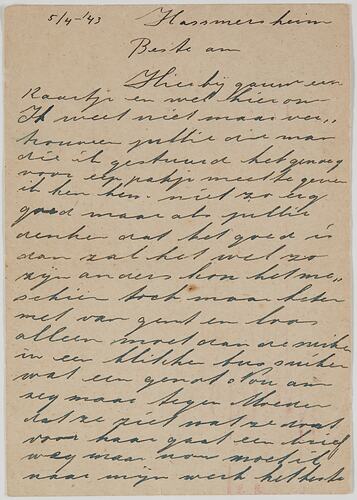 5/4-'43 Hassmersheim
Beste an
Hierbij gauw een
kaartje en wel hierom
Ik weet niet maar ver„
trouwen jullie die man
die ik gestuurd het genoeg
voor een pakje mee te geven
ik ken hem niet zo erg
goed maar als jullie
denken dat het goed is
dan zal het wel zo
zijn anders kon het me„
schien toch maar beter
met van gent en loos
alleen moet dan de suiker
in een blikke bus suiker
wat een genot Nou an
zeg maar tegen Moeder
dat ze ziet wat ze wat
voor haar gaat een brief
weg maar nou moet ik
naar mijn werk het beste